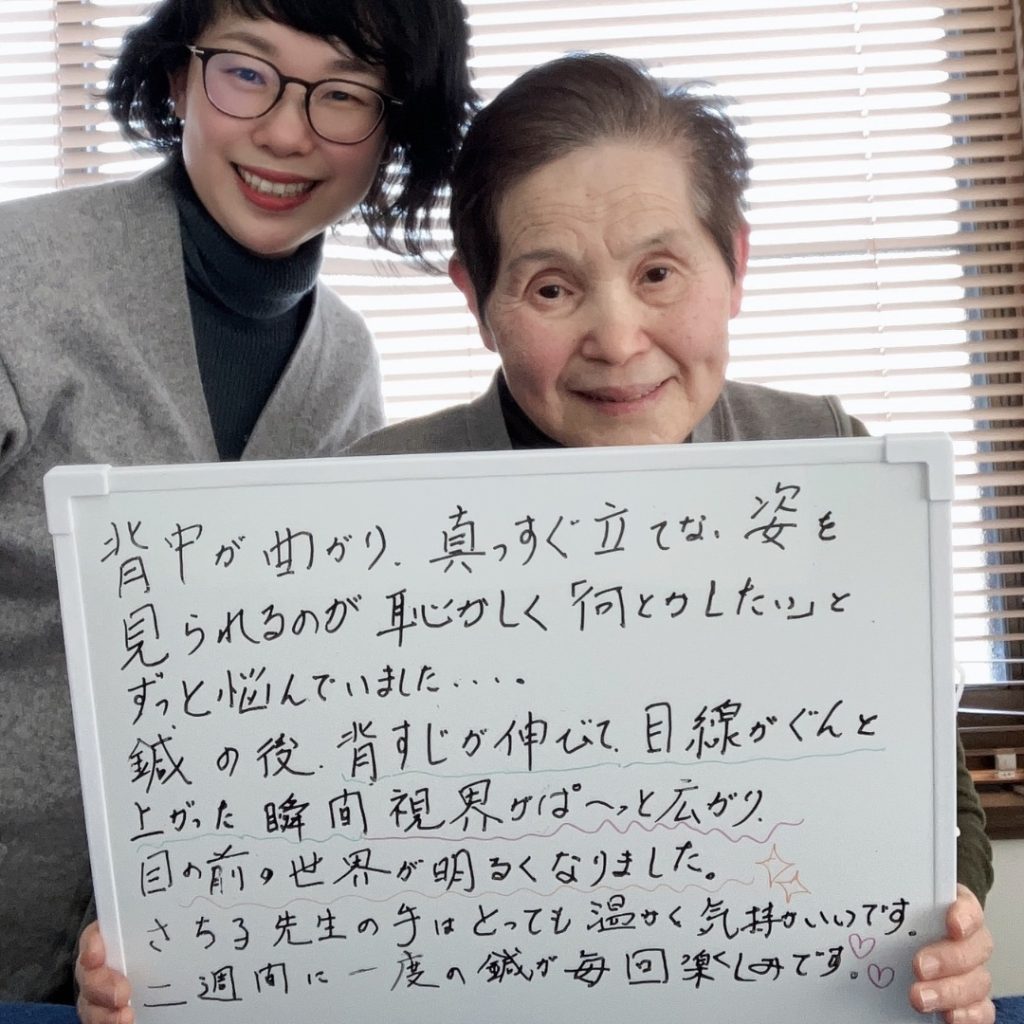 背中が曲がり、真っすぐ立てない姿を
見られるのが恥かしく「何とかしたい」と
ずっと悩んでいました‥‥。
鍼の後、背すじが伸びて、目線がぐんと
上がった瞬間視界がぱーっと広がり、
目の前の世界が明るくなりました。
さちる先生の手はとっても温かく気持がいいです。
二週間に一度の鍼が毎回楽しみです。